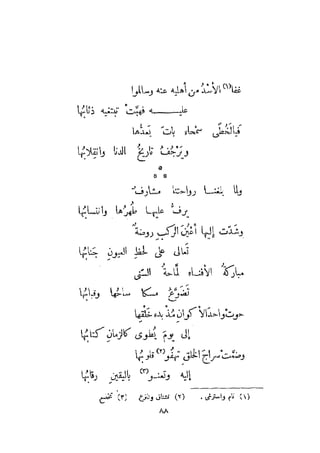 غفا(١) الأسْدُ من أهليه عنه وسالموا
عليـــه فهبَّتْ تبتغيه ذئابُها
فيالخُطًى سمحاء بات يعدُّها
ويَرْجُفُ تاريخُ الدنا وانقلابُها
ولما بلغنـــا رواحتنا مشارفٌ
يرفُّ عليهـا طُهرُها وانتسابُها
وشدَّت إليها أعْيُنَ الركبِ روضةٌ
تعالى على لحظِ العيونِ جنابُها
مباركةُ الأفنـاءِ لمَّاحةُ السَّنى
تَضَوَّعُ مسكا ساحُها وقبابُها
حوت واحدَ الأكوانِ مُنْذ بدء خَلْقِها
إلى يومَ يُطوى كالزمانِ كتابُها
وضمَّت سراجَ الخلقِ تهفُو(٢) قلوبُها
إليه وتعنــو(٣) باليقينِ رقابُها
(١) نام واسترخى . (٢) تشتاق وتفرع (٣) تخضع
٨٨